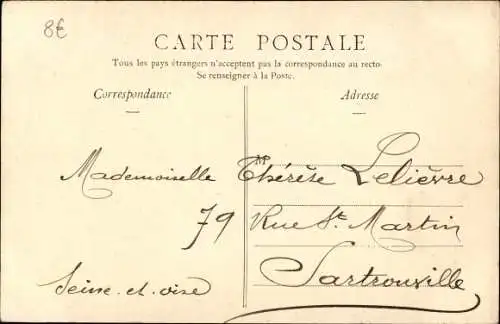 8€
CARTE POSTALE
Tous les pays étrangers n'acceptent pas la correspondance au recto.
Se renseigner à la Poste.
Correspondance Adresse
M
Mademoiselle Thérèse Lelièvre
79 Rue St. Martin
Sartrouville
Seine-et-oise